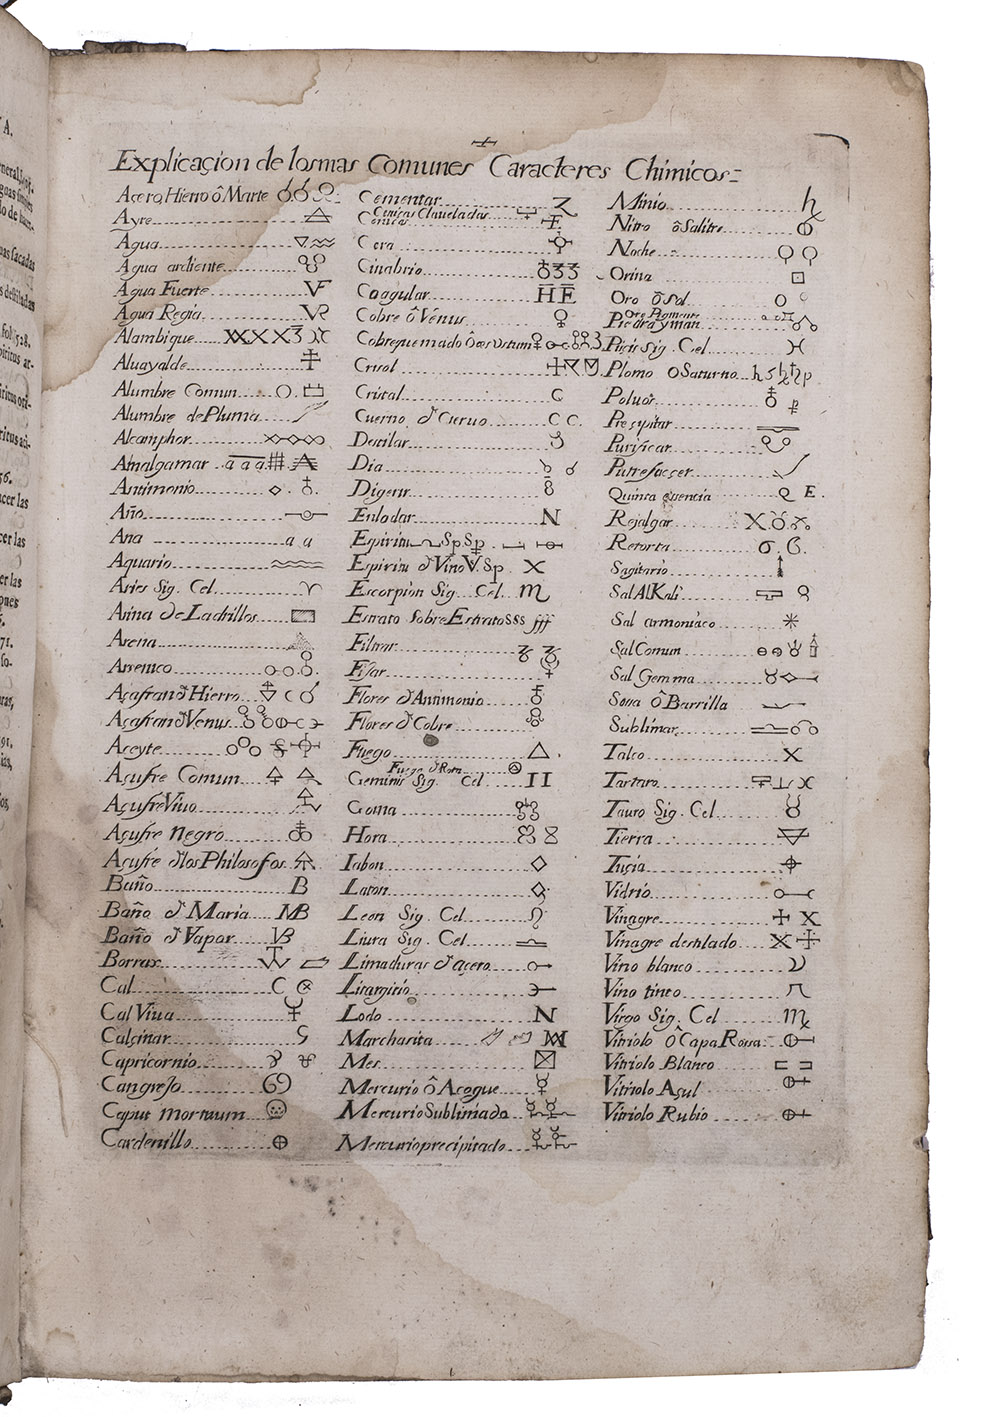 Explicaçion de losmas Comunes Caracteres Chimicos
Açero, Hierro ô Marte
Ayre
Agua
Agua ardiente
Agua Fuerte
Agua Regia
Alambique
Aluayalde
Alumbre Comun
Alumbre de Pluma
Alcamphor
Amalgamar a a a
Antimonio
Año
Ana a a
Aquario
Aries Sig. Cel
Arina de Ladrillos
Arena
Arsenico
Açafran d Hierro
Açafran d Venus
Aseyte
Açufre Comun
Açufre Viuo
Açufre Negro
Açufre d los Philosofos
Baño B
Baño d Maria MB
Baño d Vapor VB
Borrax
Cal C
Cal Viua
Calçinar
Capricornio
Cangrejo
Caput mortuum
Cardenillo
Cementar
Cenizas Claueladas
Cenizas
Cera
Cinabrio
Coagular
Cobre ô Venus
Cobrequemado ô æs Ustum
Crisol
Cristal C
Cuerno d Cieruo C C.
Destilar
Dia
Digerir
Enlodar
Espiritu Sp
Espiritu d Vino V. Sp
Escorpion Sig. Cel
Estrato Sobre Estrato SSS fff
Filtrar
Fixar
Flores d Antimonio
Flores d Cobre
Fuego
Fuego d Rota
Geminis Sig. Cel
Goma
Hora
Iabon
Laton
Leon Sig. Cel
Liura Sig. Cel
Limaduras d açero
Litargirio
Lodo
Marchasita
Mes
Mercurio ô Açogue
Mercurio Sublimado
Mercurio precipitado
Minio
Nitro ô Salitre
Noche
Orina
Oro ô Sol
Oro Pigmento
Piedra yman
Piscis Sig. Cel
Plomo o Saturno
Poluos
Preçipitar
Purificar
Putrefacçer
Quinta essencia Q E.
Rejalgar
Retorta
Sagitario
Sal Al Kali
Sal armoniaco
Sal Comun
Sal Gemma
Sosa ô Barrilla
Sublimar
Talco
Tartaro
Tauro Sig. Cel
Tierra
Tuçia
Vidrio
Vinagre
Vinagre destilado
Vino blanco
Vino tinto
Virgo Sig. Cel
Vitriolo ô Capa Rossa
Vitriolo Blanco
Vitriolo Açul
Vitriolo Rubio